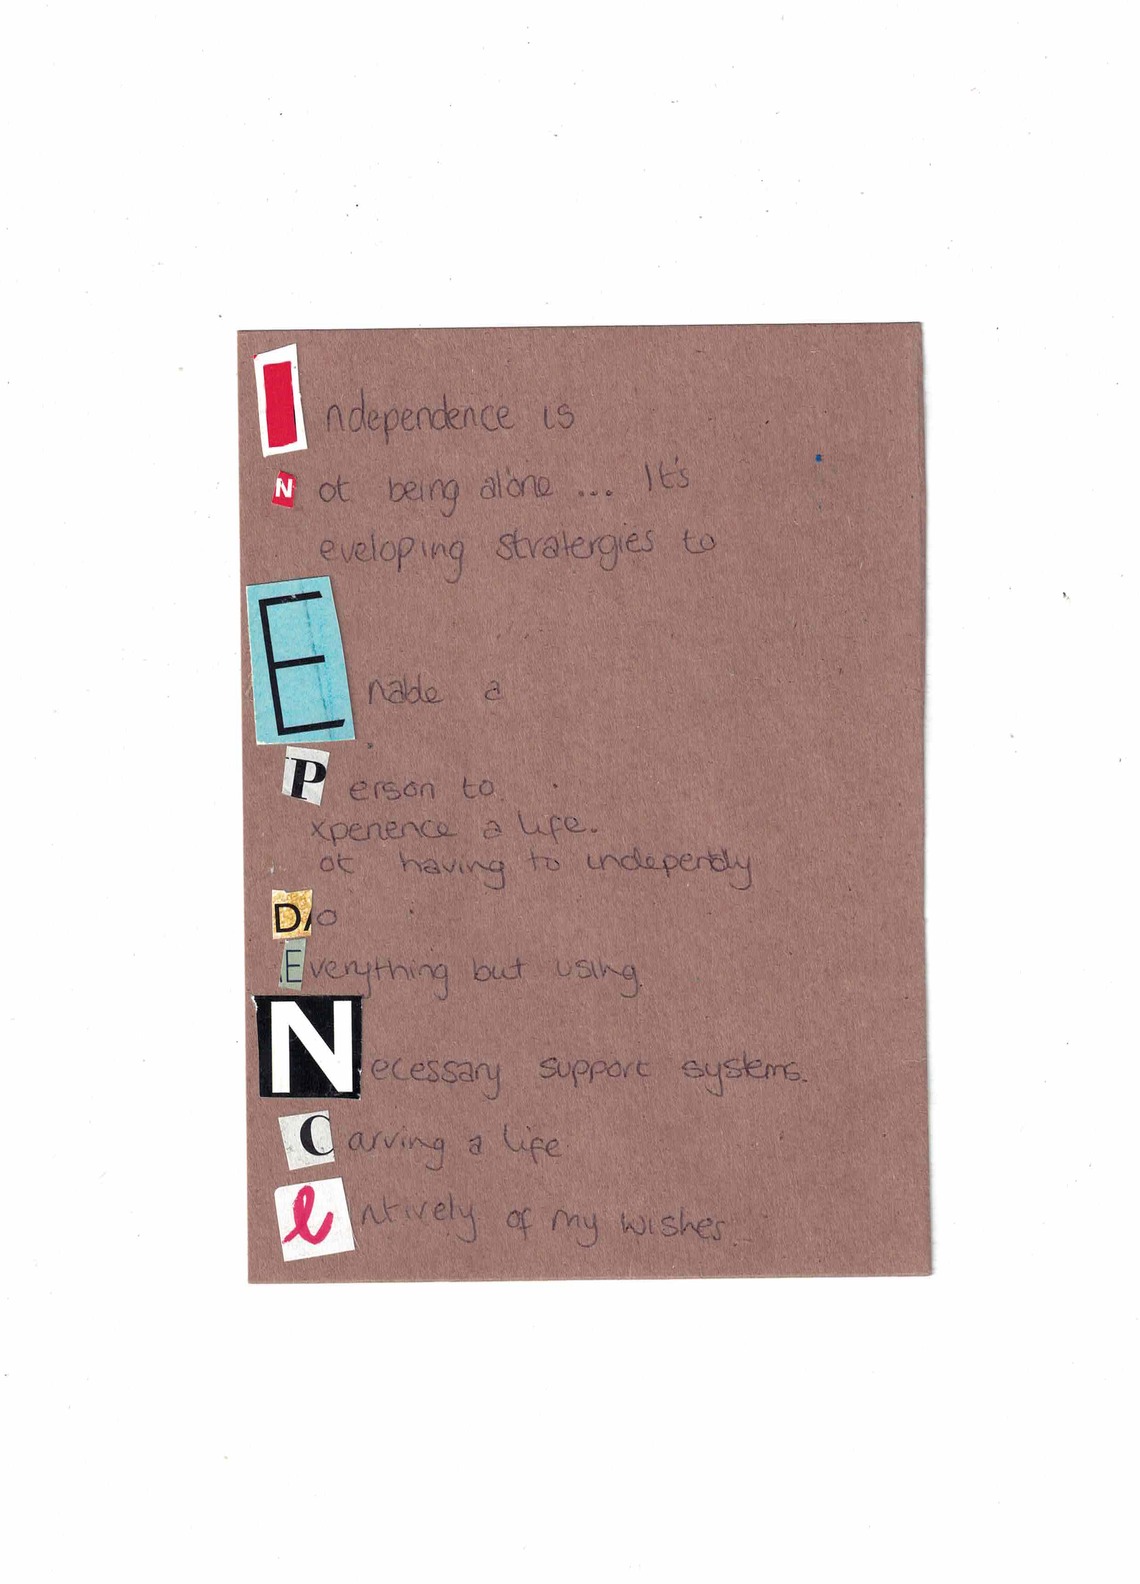 Independence is
Not being alone ... It's
eveloping stratergies to
Enable a
Person to
xperience a life.
ot having to indepently
D/o
Everything but using
Necessary support systems.
Carving a life
entively of my wishes